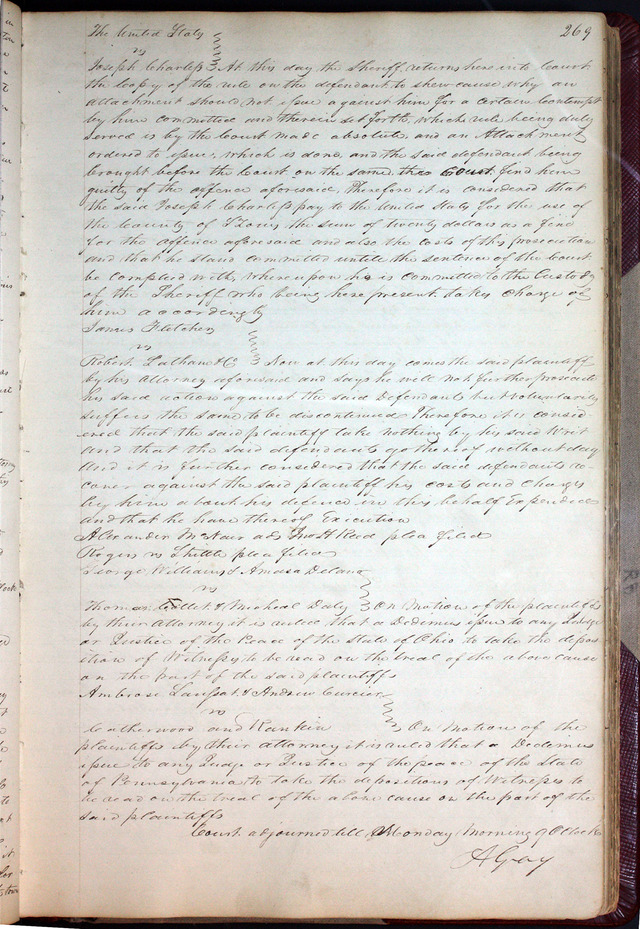 269
The United States
vs
Joseph Charless At this day the Sheriff returns here into Court
the Coopy of the rule on the defendant to shew cause why an
attachment should not issue against him for a certain Contempt
by him committed and therein set forth, which rule being duly
served is by the Court made absolute, and an Attachment
ordered to issue, which is done, and the said defendant being
brought before the Court on the same. the Court find him
guilty of the offence aforesaid, Therefore it is considered that
the said Joseph Charless pay to the United States for the use of
the County of St Louis the sum of twenty dollars as a fine
for the offence aforesaid and also the costs of this prosecution
and that he stand committed untill the sentence of the Court
be complied with, whereupon he is committed to the Custody
of the Sheriff who being here present takes charge of
him accordingly
James Fletcher
vs
Robert Latham & Co Now at this day comes the said plaintiff
by his Attorney aforesaid and says he will not further prosecute
his said action against the said Defendants but voluntarily
suffers the same to be discontinued Therefore it is consid-
ered that the said plaintiff take nothing by his said Writ
and that the said defendants go thereof without day
and it is further considered that the said defendants re-
cover against the said plaintiff his costs and Charges
by him about his defence in this behalf Expended
and that he have thereof Execution
Alexander McNair ads Jno H Reed plea filed
Rogers vs Shuttle plea filed
George Williams & Amasa Delano
vs
Thomas & Micheal Daly On Motion of the plaintiffs
by their Attorney it is ruled that a Dedemus issue to any Judge
or Justice of the Peace of the State of Ohio to take the depos
ition of Witnesses to be read on the trial of the above cause
on the part of the said plaintiffs
Ambrose Laussat & Andrew Curcier
vs
Catherwood and Rankin On Motion of the
plaintiffs by their attorney it is ruled that a Dedemus
issue to any Judge or Justice of the peace of the State
of Pennsylvania to take the depositions of Witnesses to
be read on the trial of the above cause on the part of the
said plaintiffs
Court adjourned till Monday Morning 9 OClock
A Gray